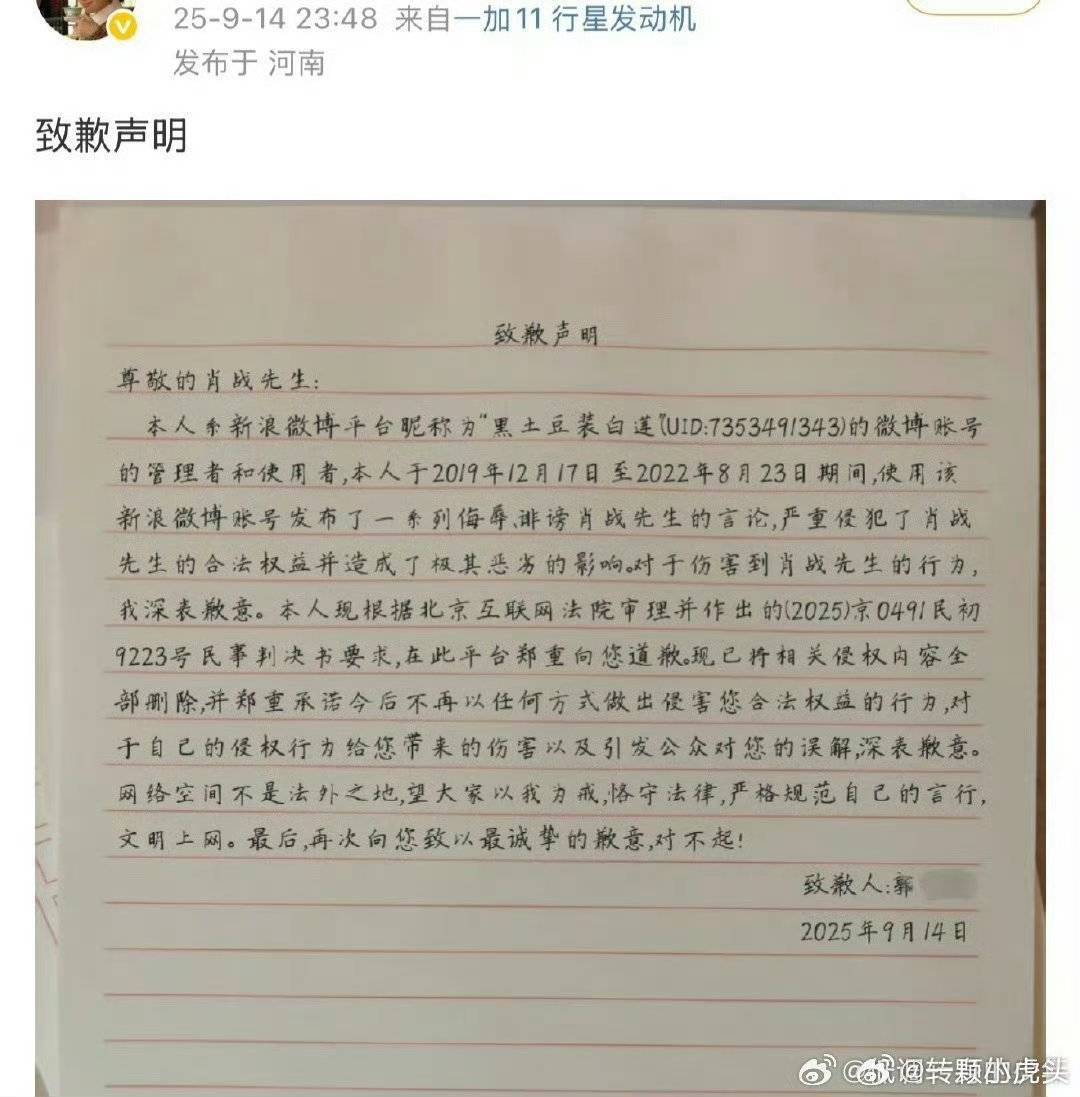 25-9-14 23:48 来自一加11 行星发动机
发布于 河南
致歉声明
致歉声明
尊敬的肖战先生:
本人系新浪微博平台昵称为“黑土豆装白莲”(UID:7353491343)的微博账号
的管理者和使用者,本人于2019年12月17日至2022年8月23日期间,使用该
新浪微博账号发布了一系列侮辱、诽谤肖战先生的言论,严重侵犯了肖战
先生的合法权益并造成了极其恶劣的影响。对于伤害到肖战先生的行为,
我深表歉意。本人现根据北京互联网法院审理并作出的(2025)京0491民初
9223号民事判决书要求,在此平台郑重向您道歉。现已将相关侵权内容全
部删除,并郑重承诺今后不再以任何方式做出侵害您合法权益的行为,对
于自己的侵权行为给您带来的伤害以及引发公众对您的误解,深表歉意。
网络空间不是法外之地,望大家以我为戒,恪守法律,严格规范自己的言行,
文明上网。最后,再次向您致以最诚挚的歉意,对不起!
致歉人:郭
2025年9月14日